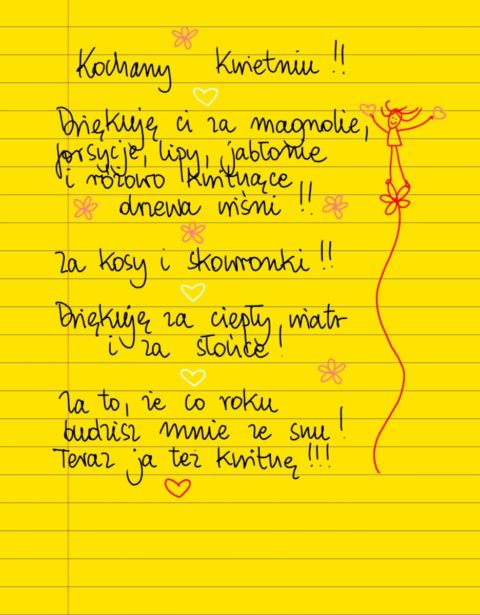 Kochany Kwietniu !!
Dziękuję ci za magnolie,
forsycje, lipy, jabłonie
i różowo kwitnące
drzewa wiśni !!
za kosy i skowronki !!
Dziękuję za ciepły, wiatr
i za słońce !
Za to, że co roku
budzisz mnie ze snu !
Teraz ja też kwitnę !!!